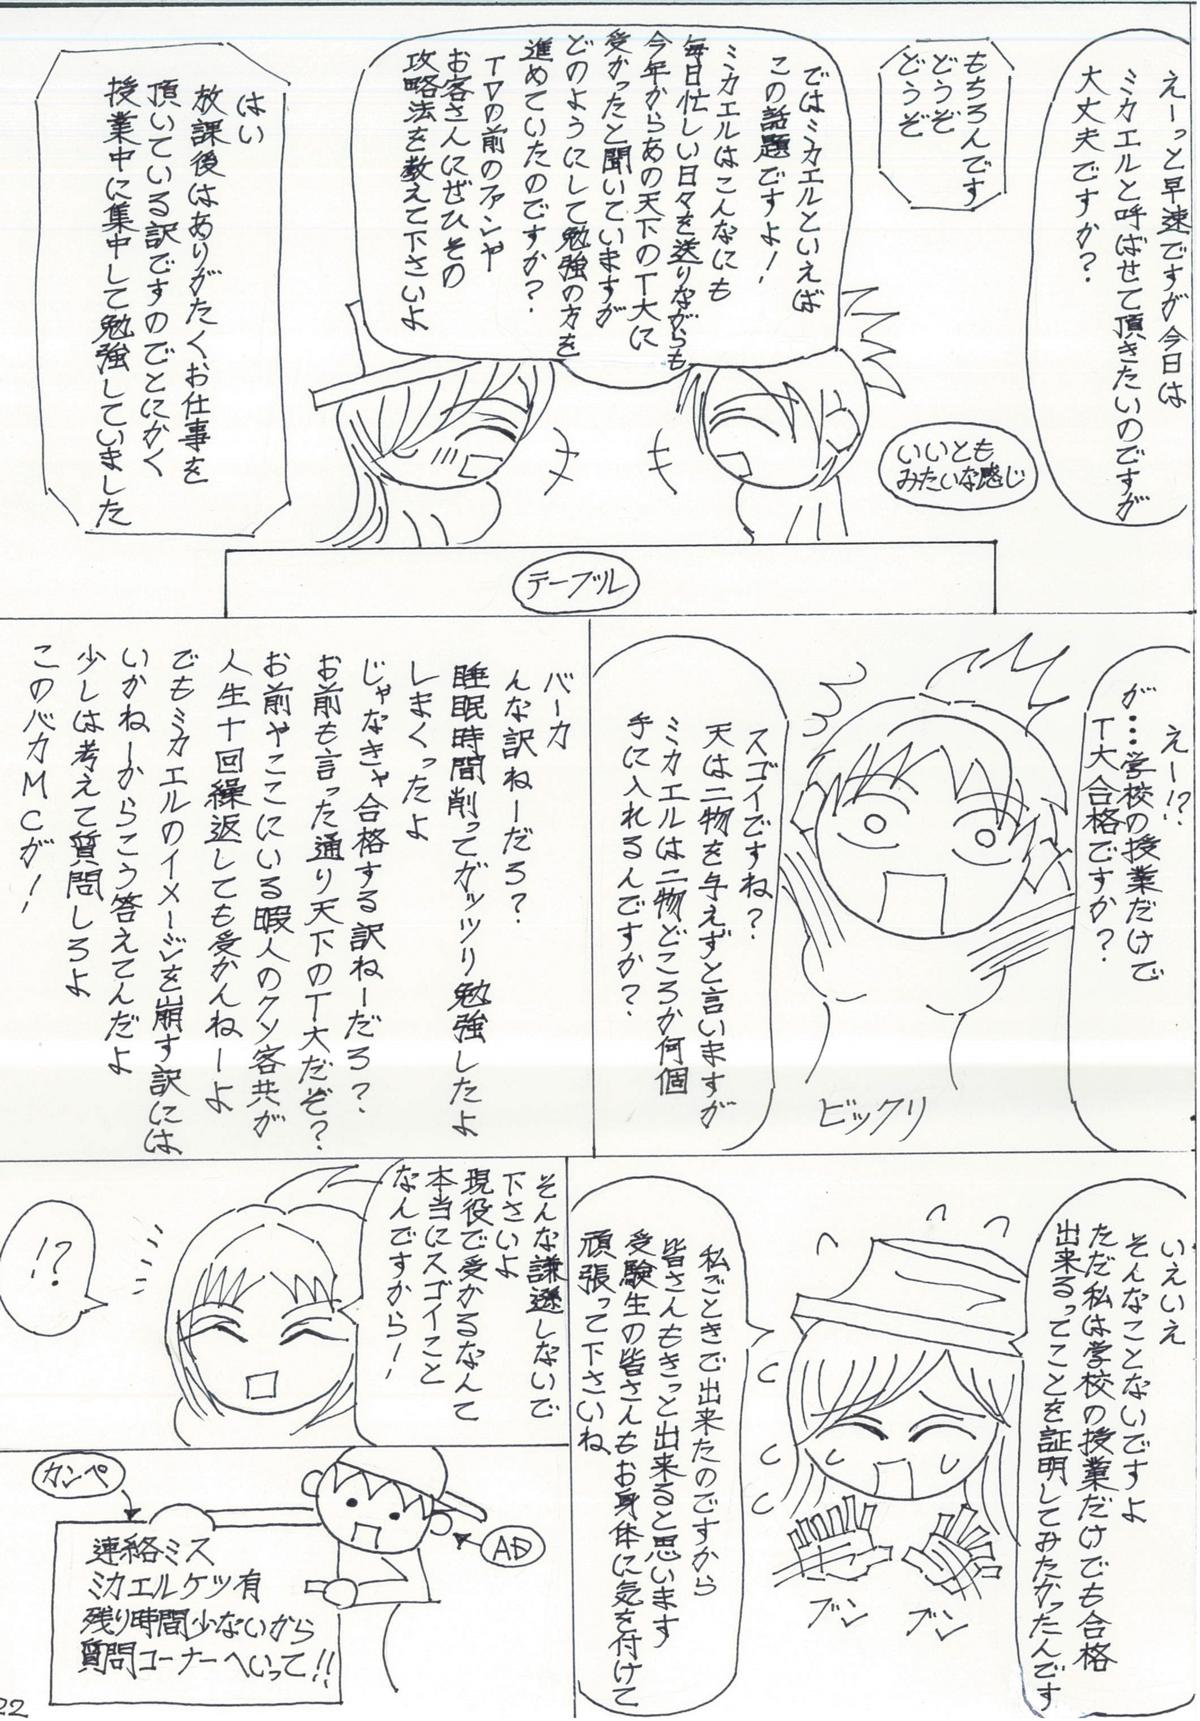 えーっと早速ですが今日は
ミカエルと呼ばせて頂きたいのですが
大丈夫ですか?
もちろんです
どうぞ
どうぞ
ではミカエルといえば
この話題ですよ!
ミカエルはこんなにも
毎日忙しい日々を送りながらも
今年からあの天下のT大に
受かったと聞いていますが
どのようにして勉強の方を
進めていたのですか?
TVの前のファンや
お客さんにぜひその
攻略法を教えて下さいよ
はい
放課後はありがたくお仕事を
頂いている訳ですのでとにかく
授業中に集中して勉強していました
いいとも
みたいな感じ
テーブル
えー!?
が・・・学校の授業だけで
T大合格ですか?
スゴイですね?
天は二物を与えずと言いますが
ミカエルは二物どころか何個
手に入れるんですか?
ビックリ
バーカ
んな訳ねーだろ?
睡眠時間削ってガッツリ勉強したよ
しまくったよ
じゃなきゃ合格する訳ねーだろ?
お前も言った通り天下のT大だぞ?
お前やここにいる暇人のクソ客共が
人生十回繰返しても受かんねーよ
でもミカエルのイメージを崩す訳には
いかねーからこう答えてんだよ
少しは考えて質問しろよ
このバカMCが!
いえいえ
そんなことないですよ
ただ私は学校の授業だけでも合格
出来るってことを証明してみたかったんです
私ごときで出来たのですから
皆さんもきっと出来ると思います
受験生の皆さんもお身体に気を付けて
頑張って下さいね
ブン
ブン
そんな謙遜しないで
下さいよ
現役で受かるなんて
本当にスゴイこと
なんですから!
!?
カンペ
AD
連絡ミス
ミカエルケツ有
残り時間少ないから
質問コーナーへいって!!
22